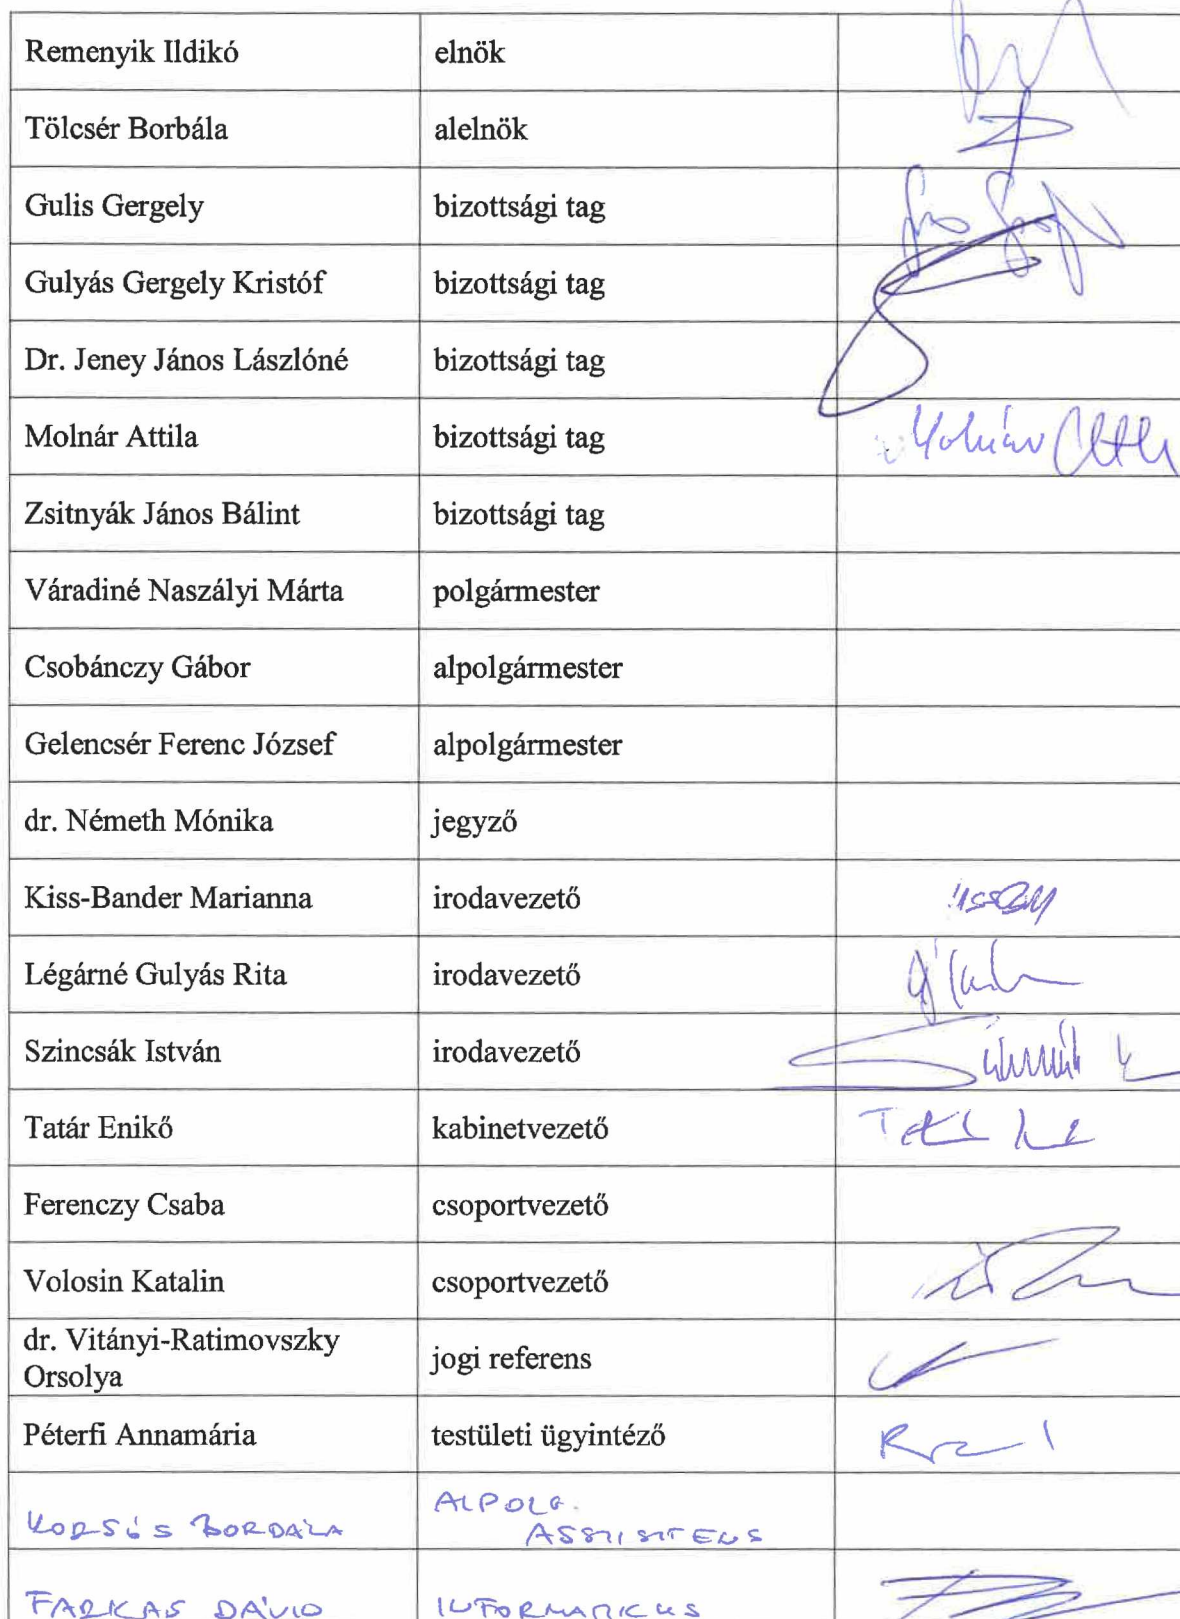 Remenyik Ildikó elnök
Tölcsér Borbála alelnök
Gulis Gergely bizottsági tag
Gulyás Gergely Kristóf bizottsági tag
Dr. Jeney János Lászlóné bizottsági tag
Molnár Attila bizottsági tag Molnár
Zsitnyák János Bálint bizottsági tag
Váradiné Naszályi Márta polgármester
Csobánczy Gábor alpolgármester
Gelencsér Ferenc József alpolgármester
dr. Németh Mónika jegyző
Kiss-Bander Marianna irodavezető
Légárné Gulyás Rita irodavezető
Szincsák István irodavezető
Tatár Enikő kabinetvezető
Ferenczy Csaba csoportvezető
Volosin Katalin csoportvezető
dr. Vitányi-Ratimovszky
Orsolya
jogi referens
Péterfi Annamária testületi ügyintéző
ALPOLG.
FARKAS DÁVID INFORMATIKUS